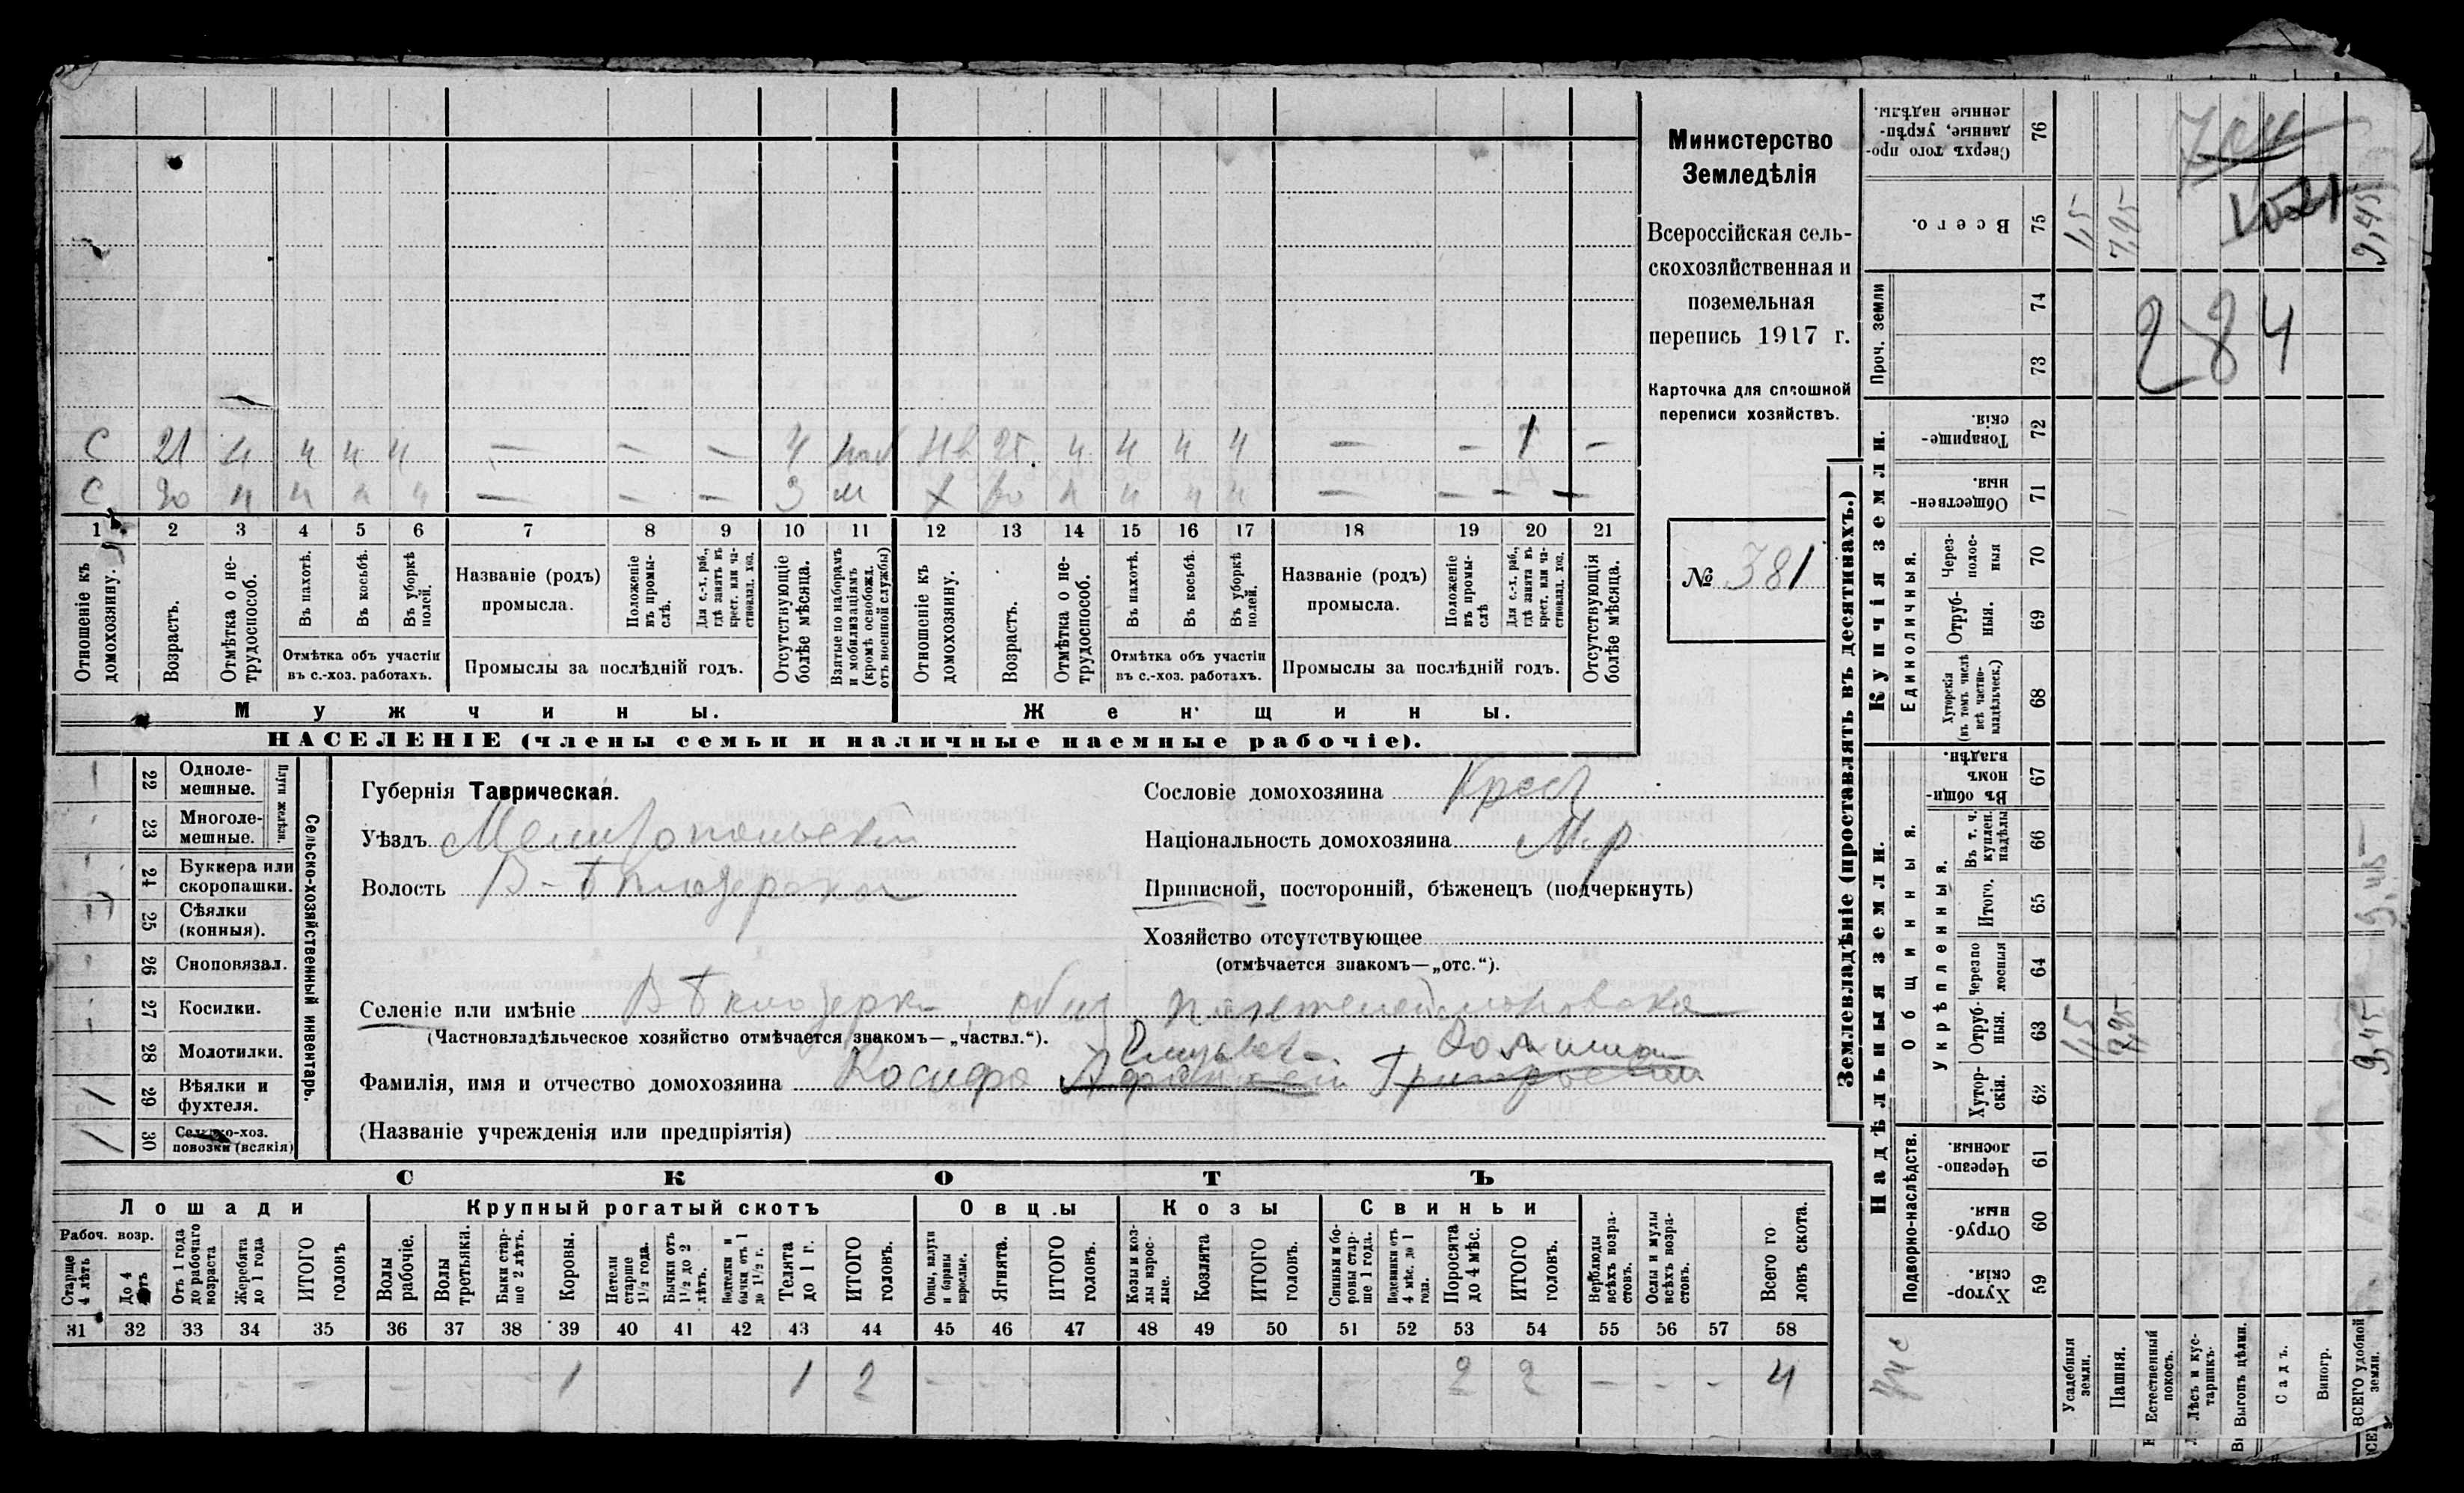 Министерство
Земледѣлія
Всероссійская сель-
скохозяйственная и
поземельная
перепись 1917 г.
Карточка для сплошной
переписи хозяйствъ.
№ 381
С 21 н н н н — — — 4 25 н н н н — — 1 —
С 20 н н н н — — — 3 м н н н н — — — —
1 2 3 4 5 6 7 8 9 10 11 12 13 14 15 16 17 18 19 20 21
Отношеніе къ домохозяину.
Возрастъ.
Отмѣтка о не-трудоспособ.
Въ пахотѣ.
Въ косьбѣ.
Въ уборкѣ полей.
Отмѣтка объ участіи въ с.-хоз. работахъ.
Названіе (родъ) промысла.
Положеніе въ промы-слѣ.
Для с.-х. раб., гдѣ занятъ въ крест. или ча-стновлад. хоз.
Промыслы за послѣдній годъ.
Отсутствующіе болѣе мѣсяца.
Взятые по наборамъ и мобилизаціямъ (кромѣ освобожд. отъ военной службы)
Отношеніе къ домохозяину.
Возрастъ.
Отмѣтка о не-трудоспособ.
Въ пахотѣ.
Въ косьбѣ.
Въ уборкѣ полей.
Отмѣтка объ участіи въ с.-хоз. работахъ.
Названіе (родъ) промысла.
Положеніе въ промы-слѣ
Для с.-х. раб., гдѣ занята въ крест. или ча-стновлад. хоз.
Промыслы за послѣдній годъ.
Отсутствующія болѣе мѣсяца.
Мужчины. Женщины.
НАСЕЛЕНІЕ (члены семьи и наличные наемные рабочіе).
Сельско-хозяйственный инвентарь.
Плуги желѣзн.
22 Одноле-мешные.
23 Многоле-мешные.
24 Буккера или скоропашки.
25 Сѣялки (конныя).
26 Сноповязал.
27 Косилки.
28 Молотилки.
1 29 Вѣялки и фухтеля.
1 30 Сельско-хоз. повозки (всякія)
Губернія Таврическая.
Уѣздъ Мелитопольский
Волость В-Бѣлозерская
Сословіе домохозяина Крест
Національность домохозяина М.р.
Приписной, посторонній, бѣженецъ (подчеркнуть)
Хозяйство отсутствующее
(отмѣчается знакомъ—„отс.“).
Селеніе или имѣніе В Бѣлозерка, общ. Пантелеймоновска
(Частновладѣльческое хозяйство отмѣчается знакомъ—„частвл.“).
Фамилія, имя и отчество домохозяина Григорьевич
(Названіе учрежденія или предпріятія)
СКОТЪ
Лошади Крупный рогатый скотъ Овцы Козы Свиньи
Рабоч. возр.
Старше 4 лѣтъ
До 4 лѣтъ
Отъ 1 года до рабочаго возраста
Жеребята до 1 года
ИТОГО головъ
Волы рабочіе.
Волы третьяки.
Быки стар-ше 2 лѣтъ.
Коровы.
Нетели старше 1½ года.
Бычки отъ 1½ до 2 лѣтъ.
Нетелки и бычки отъ 1 до 1½ г.
Телята до 1 г.
ИТОГО головъ.
Овцы, валухи и бараны взрослые.
Ягнята.
ИТОГО головъ.
Козы и коз-лы взрос-лые.
Козлята
ИТОГО головъ.
Свиньи и бо-ровы стар-ше 1 года.
Подсвинки отъ 4 мѣс. до 1 года.
Поросята до 4 мѣс.
ИТОГО головъ.
Верблюды всѣхъ возра-стовъ.
Ослы и мулы всѣхъ возра-стовъ.
Всего го ловъ скота.
31 32 33 34 35 36 37 38 39 40 41 42 43 44 45 46 47 48 49 50 51 52 53 54 55 56 57 58
1 1 2 2 2 — - - 4
Землевладѣніе (проставлять въ десятинахъ.)
Купчія земли.
Надѣльныя земли.
Проч. земли
Единоличныя.
Общинныя.
Укрѣпленныя.
Подворно-наслѣдств.
76 Сверхъ того про-данные, укрѣп-ленные надѣлы.
75 Всего. 1,5 7,95 9,45
74
73
284
72 Товарище-скія.
71 Обществен-ныя.
70 Через-полос-ныя
69 Отруб-ныя.
68 Хуторскія (въ томъ числѣ всѣ частно-владѣльческ.)
67 Въ общи-номъ владѣн.
66 Въ т. ч. куплен. надѣлы
65 Итого. 9,45
64 Черезпо лосныя
63 Отруб-ныя. 1,5 7,95 9,45
62 Хутор-скія.
61 Черезпо-лосныя.
60 Отруб-ныя.
59 Хутор-скія.
Усадебныя земли.
Пашня.
Естественный покосъ.
Лѣсъ и кус-тарникъ.
Выгонъ цѣлин.
Садъ.
Виногр.
ВСЕГО удобной земли.